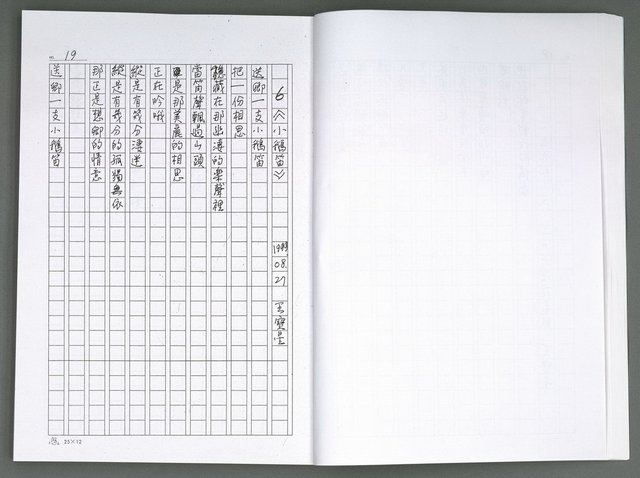 NO. 19
6《小鵝笛》 1993.08.27 王寶星
送鄉一支小鵝笛
把一份相思
隱藏在那幽淒的樂聲裡
當笛聲飄過山頭
正是那美麗的相思
正在吟哦
縱是有幾分淒迷
縱是有幾分的孤獨無依
那正是想鄉的情意
送鄉一支小鵝笛
25×12